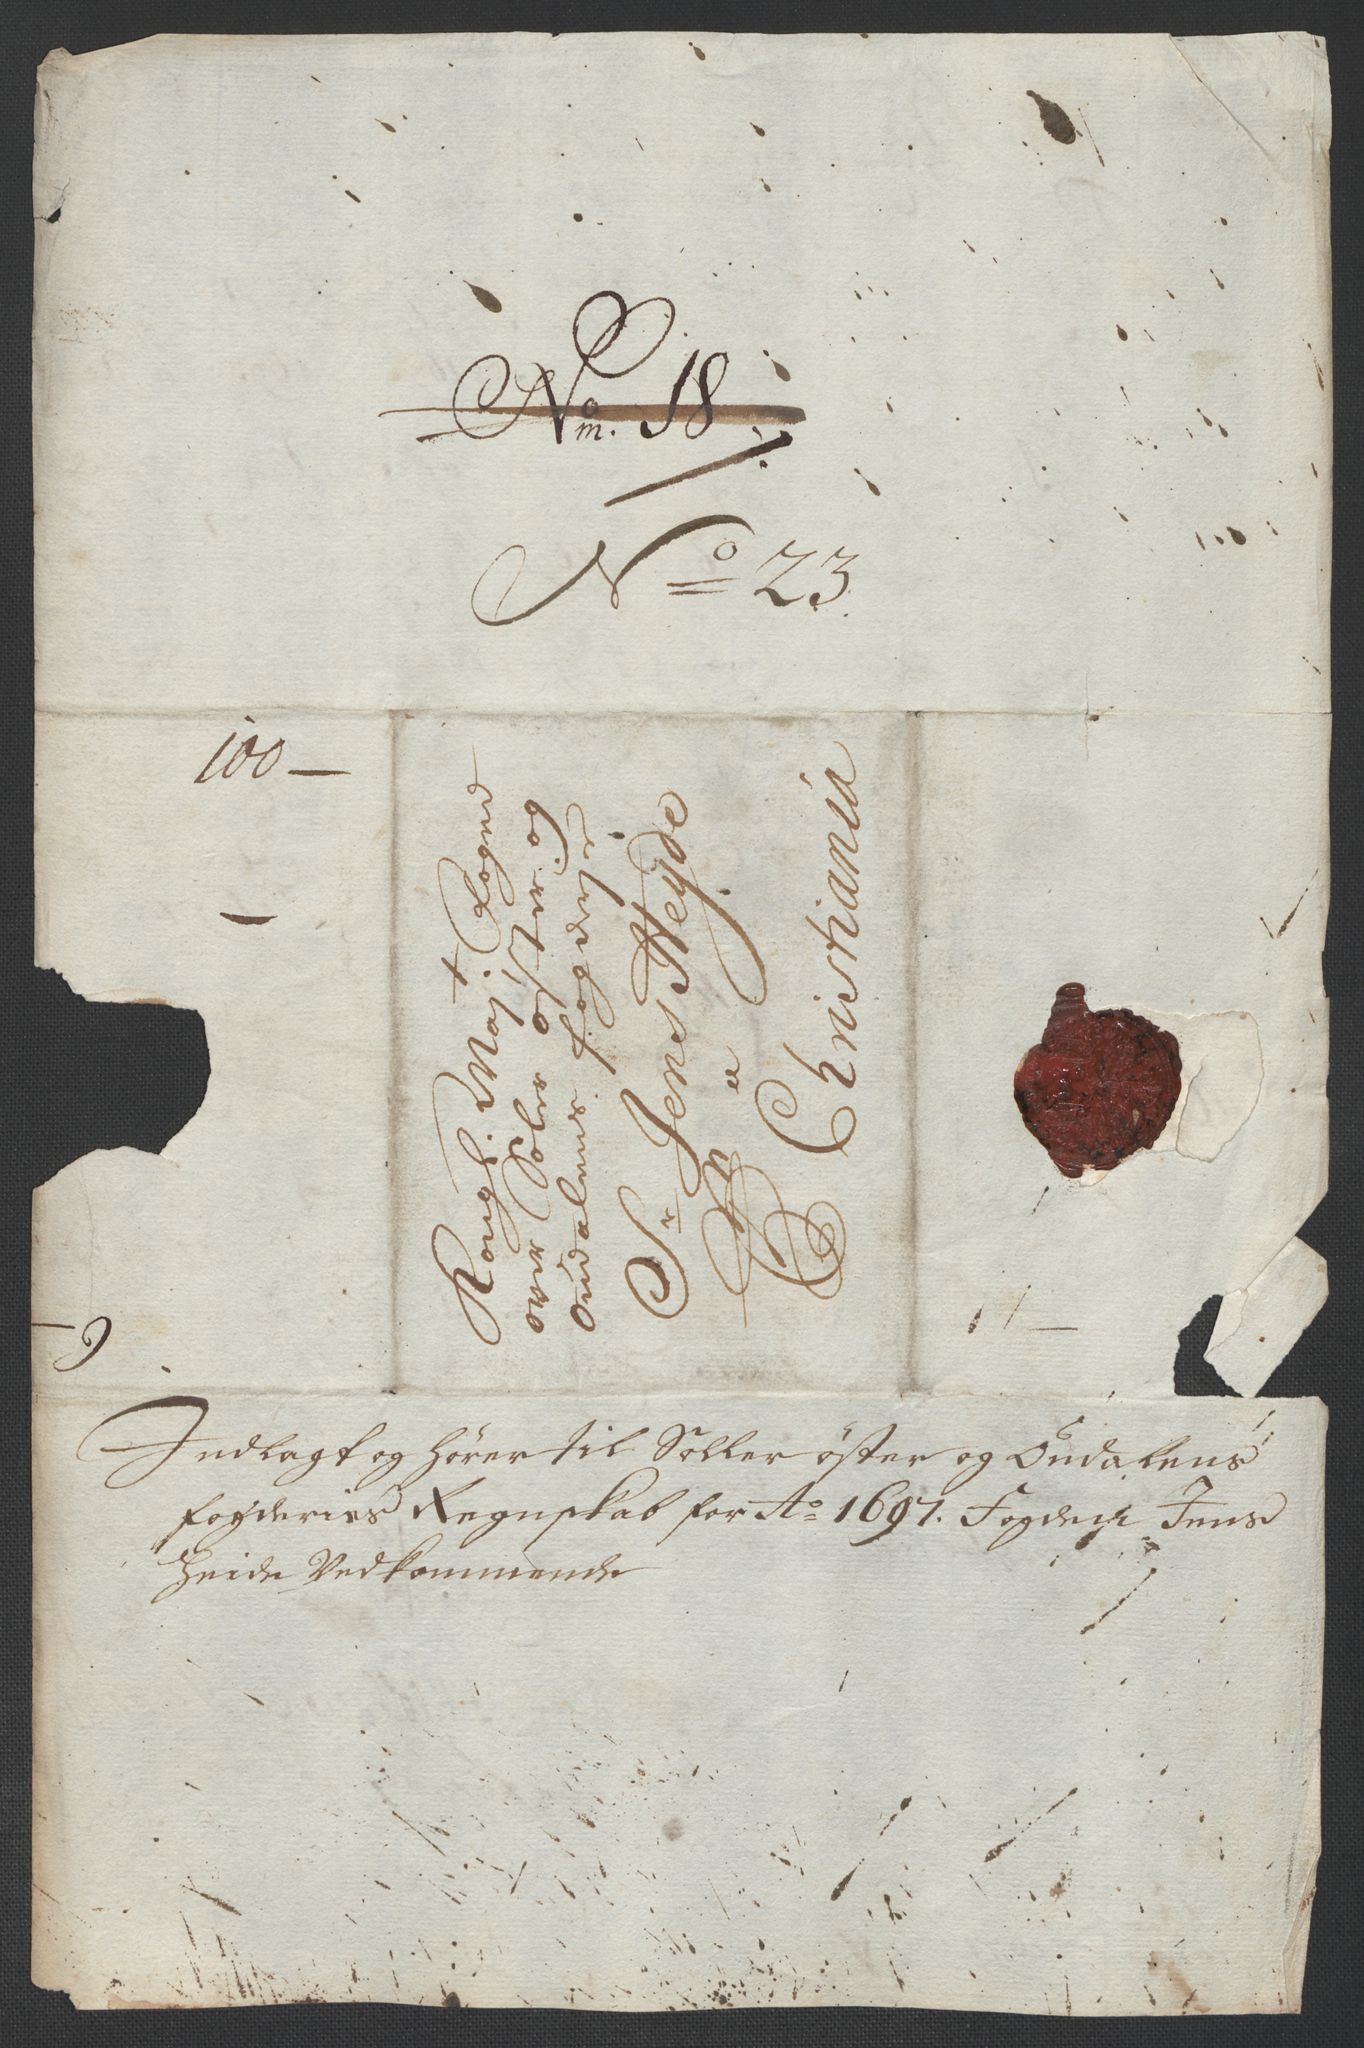 Nom. 18
No 23
100 —
Kongl. Maj.t Foged
over Soler Øster og
Oudalens fogderje
Sr Jens Heyde
Paa
Christiania
Indlagt og hører til Soller öster og Oudalens
fogderies Regnskab for Ao 1697. Fogden Jens
Heide Vedkommende